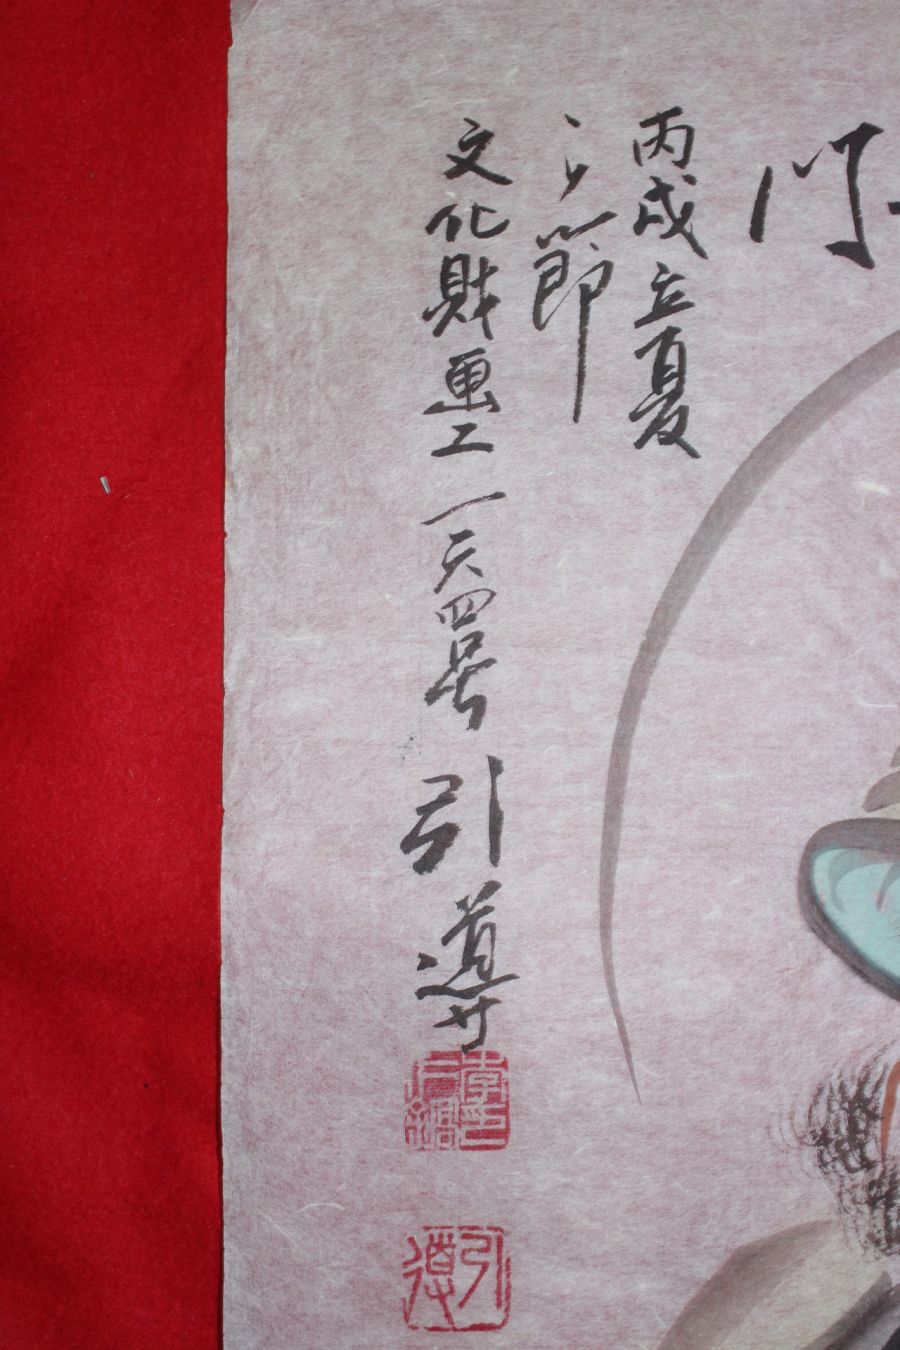 門
丙戌立夏
之節
文化財畫工 一六四号 引導